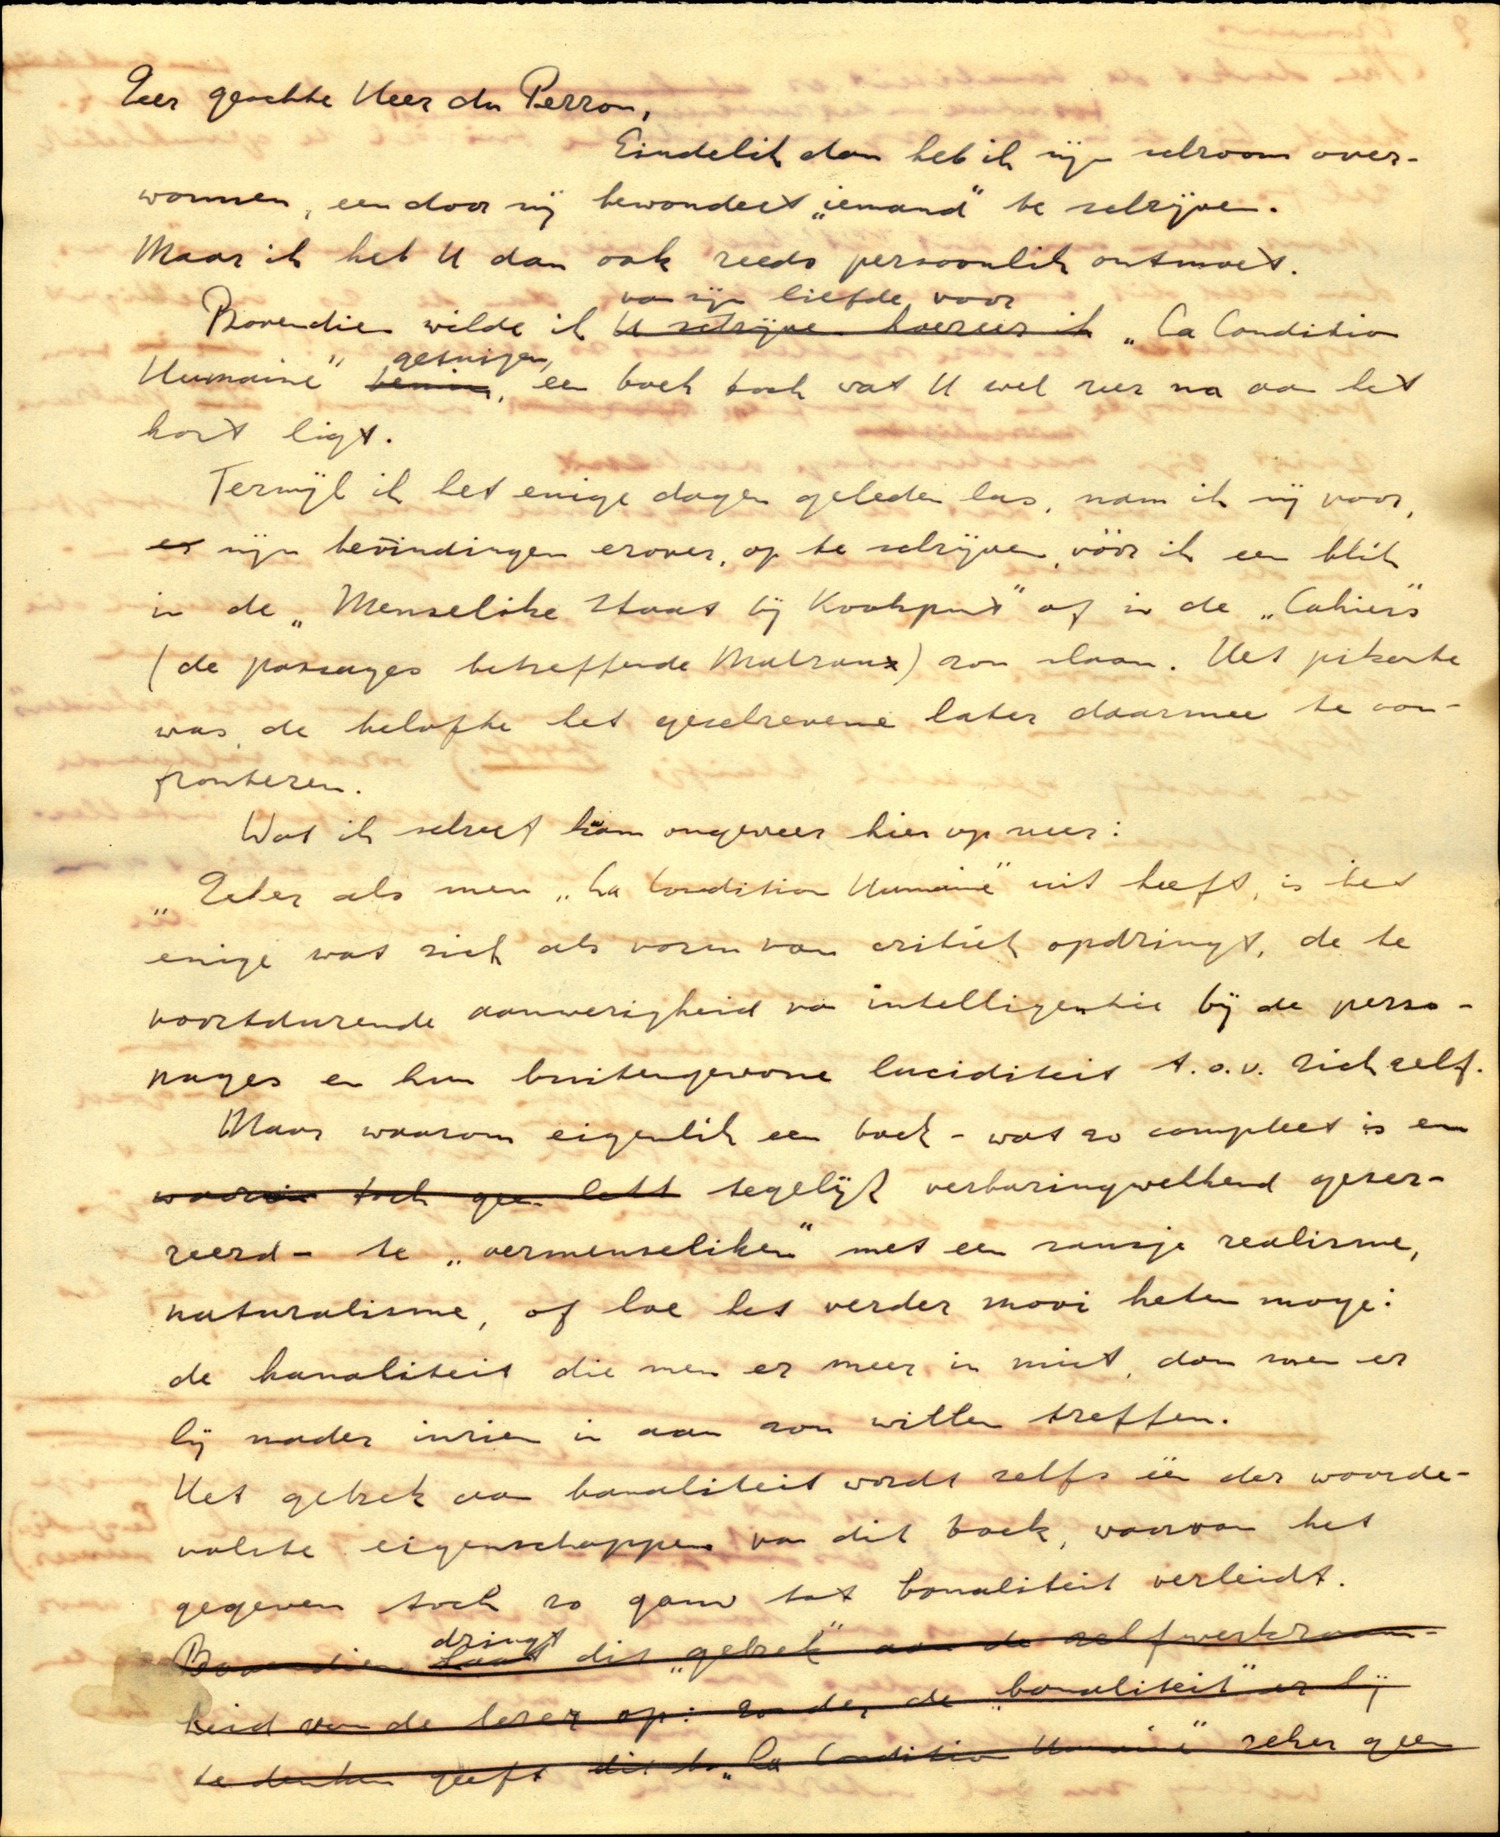 Zeer geachte Heer du Perron,
Eindelik dan heb ik mijn schroom over-
wonnen, een door mij bewonderd „iemand" te schrijven.
Maar ik heb U dan ook reeds persoonlik ontmoet.
van mijn liefde voor
Bovendien wilde ik U schrijven hoezeer ik „La Condition
getuigen,
Humaine" , een boek toch wat U wel zeer na aan het
hart ligt.
Terwijl ik het enige dagen geleden las, nam ik mij voor,
er mijn bevindingen erover, op te schrijven, vóór ik een blik
in de „Menselike Staat bij Kookpunt" of in de „Cahiers"
(de passages betreffende Malraux) zou slaan. Het pikante
was, de belofte het geschrevene later daarmee te con-
fronteren.
Wat ik schreef kwam ongeveer hier op neer:
„Zeker als men „La Condition Humaine" uit heeft, is het
enige wat zich als vorm van critiek opdringt, de te
voortdurende aanwezigheid van intelligentie bij de perso-
nages en hun buitengewone luciditeit t.o.v. zichzelf.
Maar waarom eigenlik een boek - wat zo compleet is en
waarin toch geen lett tegelijk verbazingwekkend geser-
reerd - te „vermenseliken" met een sausje realisme,
naturalisme, of hoe het verder mooi heten moge:
de banaliteit die men er meer in mist, dan men er
bij nader inzien in aan zou willen treffen.
Het gebrek aan banaliteit wordt zelfs één der waarde-
volste eigenschappen van dit boek, waarvan het
gegeven toch zo gauw tot banaliteit verleidt.
dringt
Bovendien laat dit „gebrek" aan de zelfwerkzaam-
heid van de lezer op: zonder de „banaliteit" er bij
te denken geeft dit b „La Condition Humaine" zeker geen